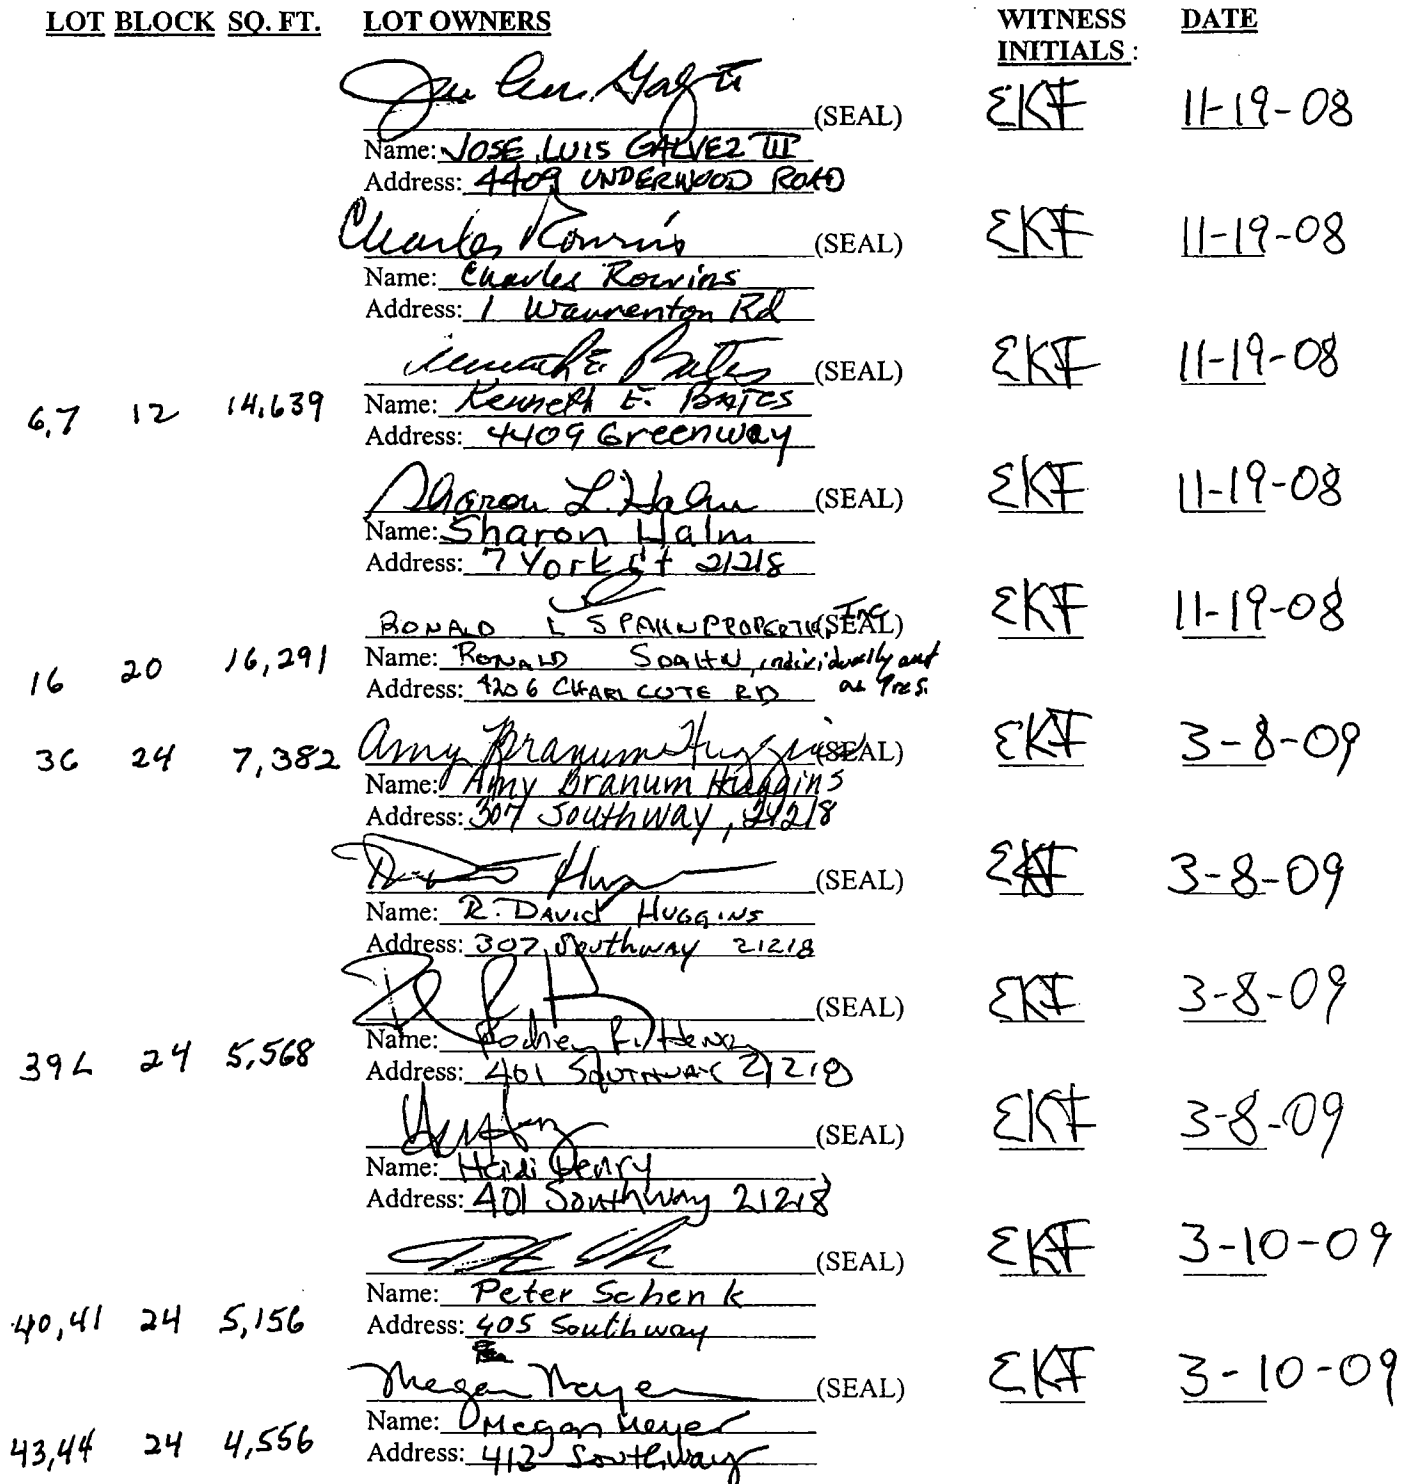 LOT BLOCK SQ. FT. LOT OWNERS WITNESS INITIALS: DATE
(SEAL) EKF 11-19-08
Name: JOSE LUIS GALVEZ III
Address: 4409 UNDERWOOD ROAD
Charles (SEAL) EKF 11-19-08
Name: Charles
Address: 1 Warrenton Rd
Kenneth E. Bates (SEAL) EKF 11-19-08
6,7 12 14,639 Name: Kenneth E. BATES
Address: 4409 Greenway
Sharon L. Halm (SEAL) EKF 11-19-08
Name: Sharon Halm
Address: 7 York Ct 21218
RONALD L SPAHN PROPERTIES, Inc (SEAL) EKF 11-19-08
16 20 16,291 Name: RONALD SPAHN, individually and
Address: 4206 CHARLCOTE RD as Pres.
36 24 7,382 Amy Branum Huggins (SEAL) EKF 3-8-09
Name: Amy Branum Huggins
Address: 307 Southway, 21218
(SEAL) EKF 3-8-09
Name: R. DAVID HUGGINS
Address: 307 Southway 21218
(SEAL) EKF 3-8-09
39L 24 5,568 Name: Rodney Henry
Address: 401 SOUTHWAY 21218
(SEAL) EKF 3-8-09
Name: Heidi Henry
Address: 401 Southway 21218
(SEAL) EKF 3-10-09
Name: Peter Schenk
40,41 24 5,156 Address: 405 Southway
Megan Meyer (SEAL) EKF 3-10-09
Name: Megan Meyer
43,44 24 4,556 Address: 413 Southway